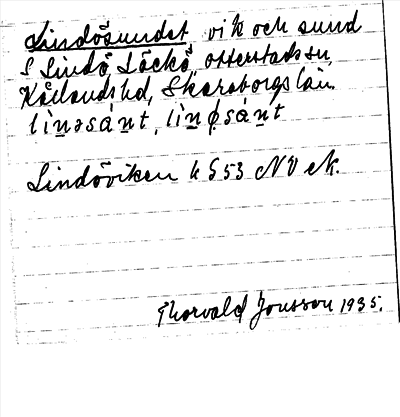 Lindösundet vik och sund
S Lindö, Läckö, Otterstads sn,
Kållands hd, Skaraborgs län.
li̱nəsànt, li̱nøsànt
Lindöviken k S53 NV ek.
Thorvald Jonsson 1935.